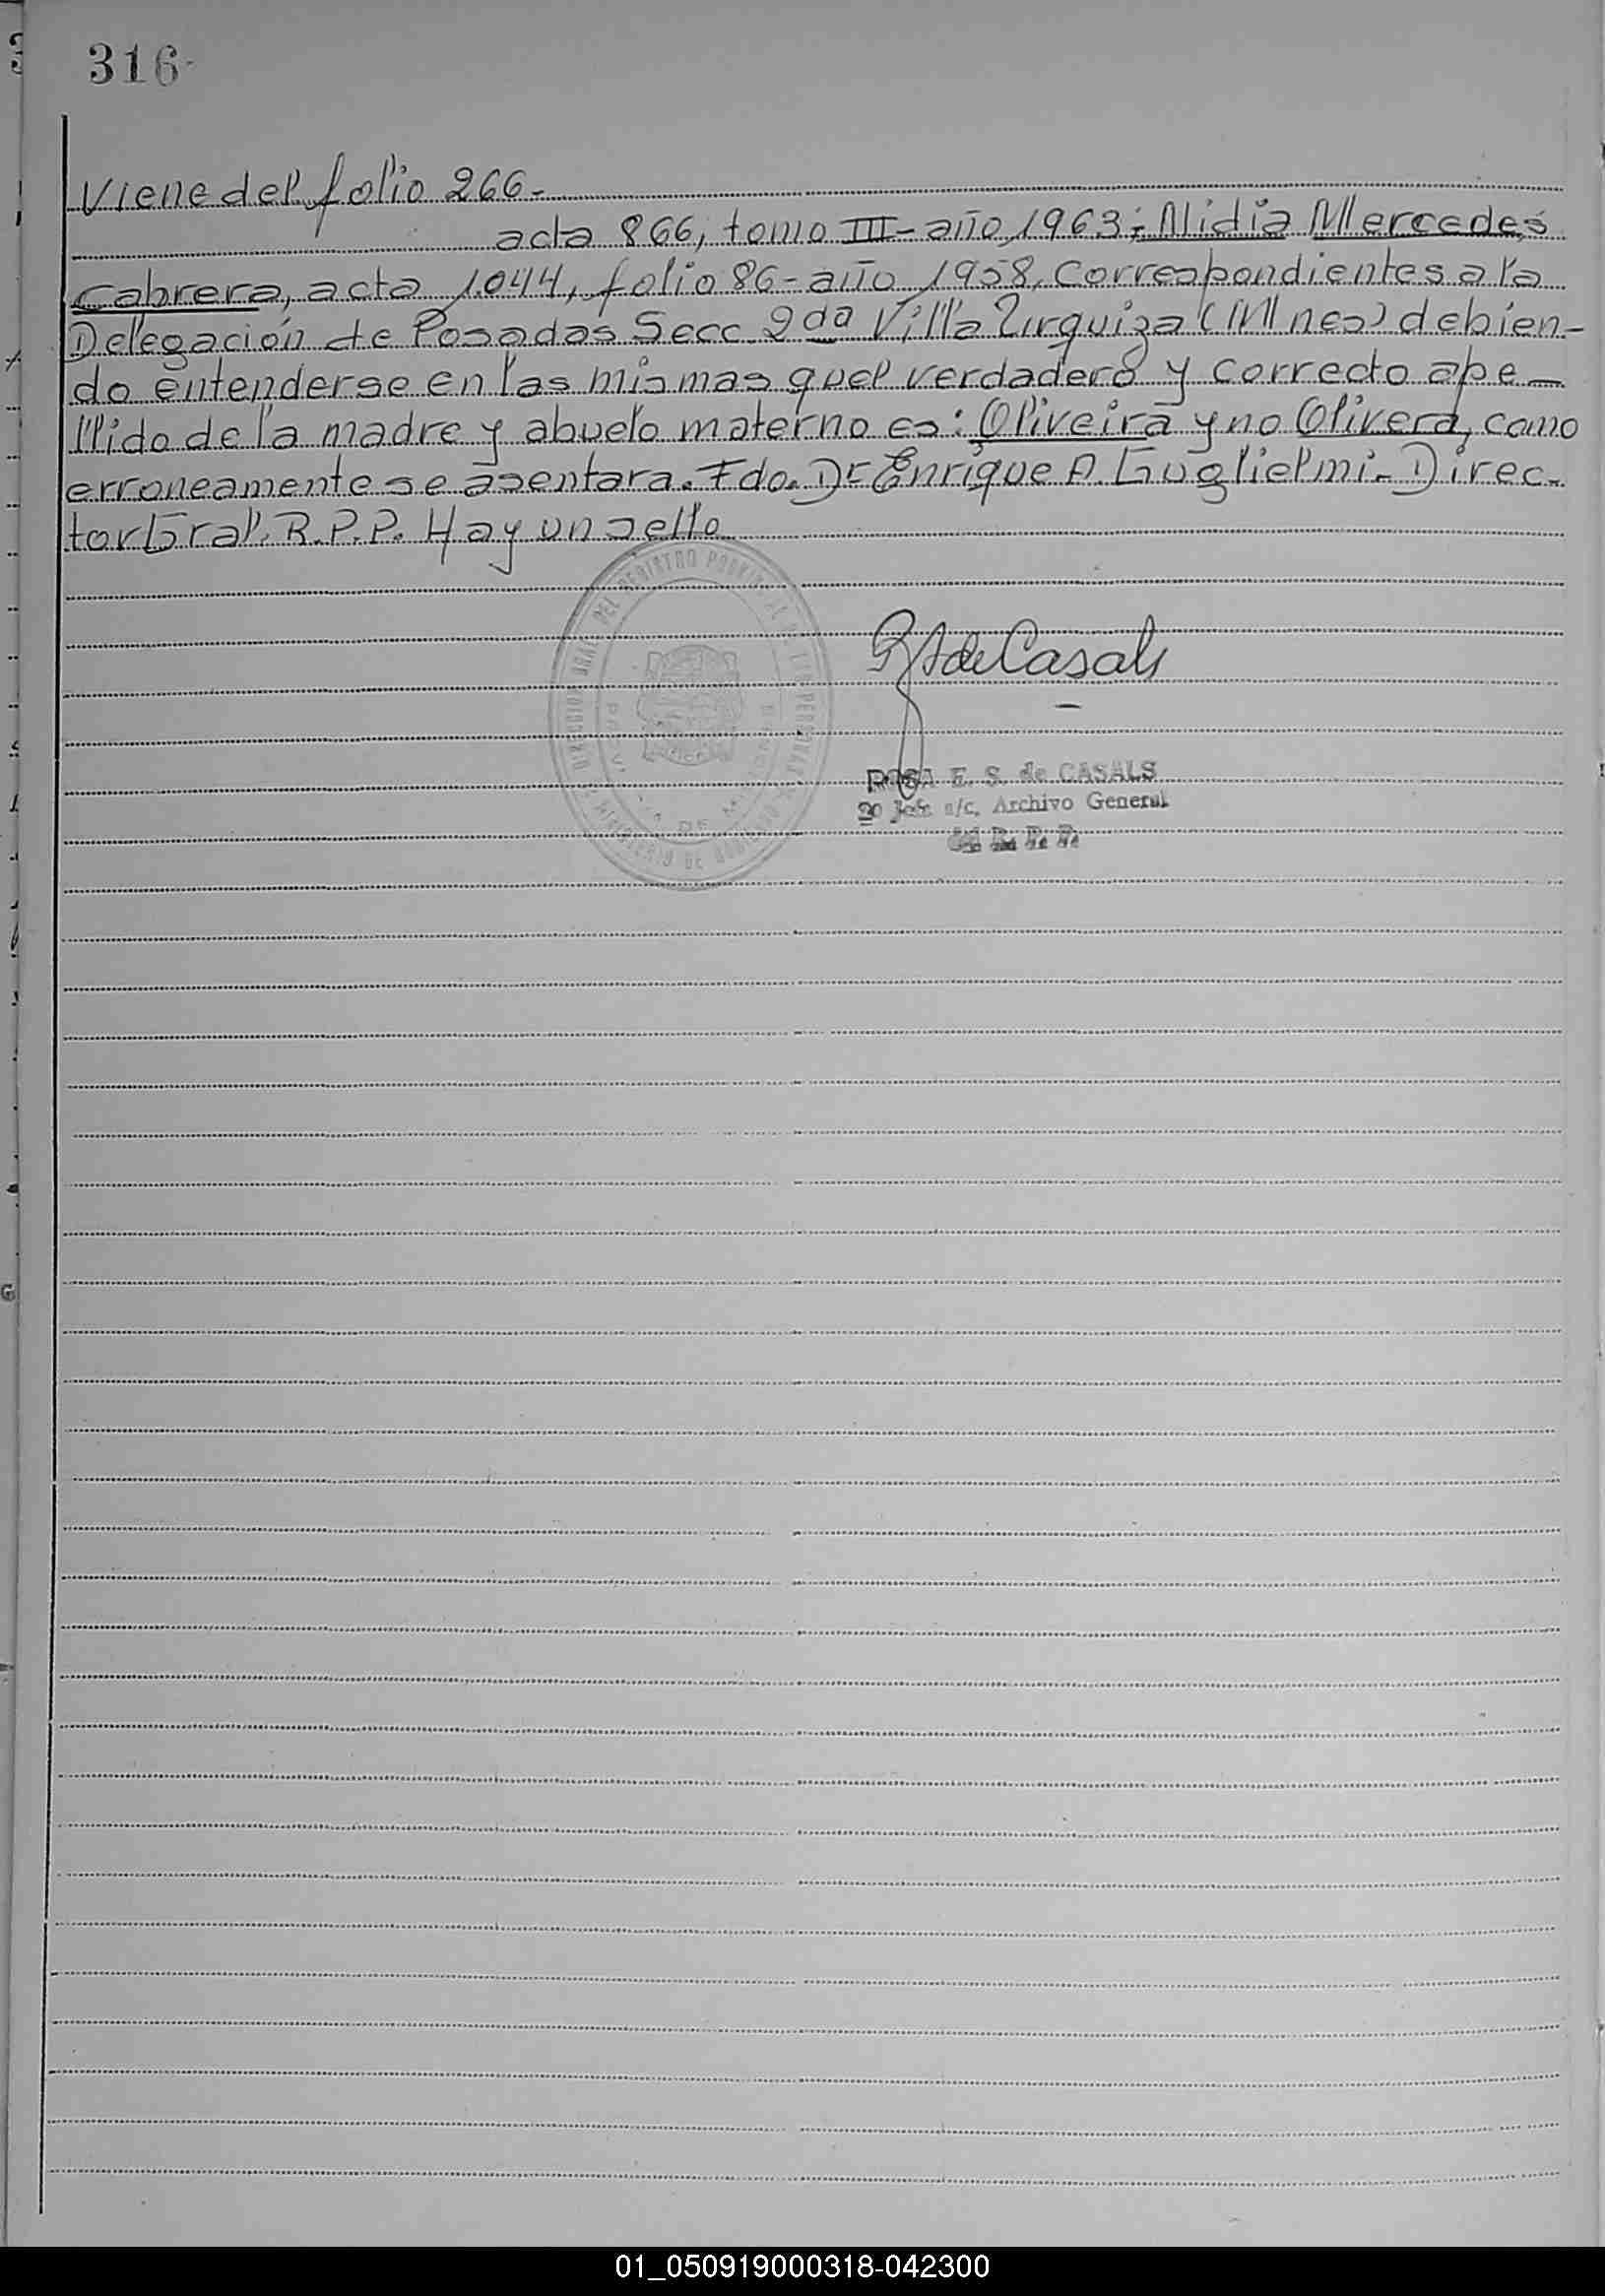 316
Viene del folio 266.-
acta 866, tomo III- año 1963; Nidia Mercedes
Cabrera, acta 1.044, folio 86- año 1958, Correspondientes a la
Delegación de Posadas Secc. 2da Villa Urquiza (Mnes) debien-
do entenderse en las mismas quel verdadero y correcto ape-
llido de la madre y abuelo materno es: Oliveira y no Olivera, como
erroneamente se asentara. Fdo. Dr Enrique A. Guglielmi.- Direc-
tor Gral. R.P.P. Hay un sello
de Casals
ROSA E. S. de CASALS
2o Jefe a/c. Archivo General
R. P. P.
01_050919000318-042300